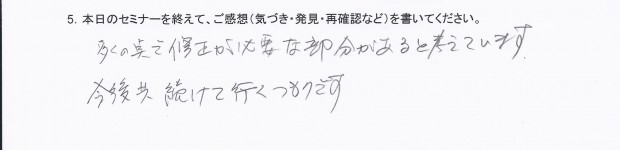 5. 本日のセミナーを終えて、ご感想（気づき・発見・再確認など）を書いてください。
多くの点で修正が必要な部分があると考えています。
今後共 続けて行くつもりです